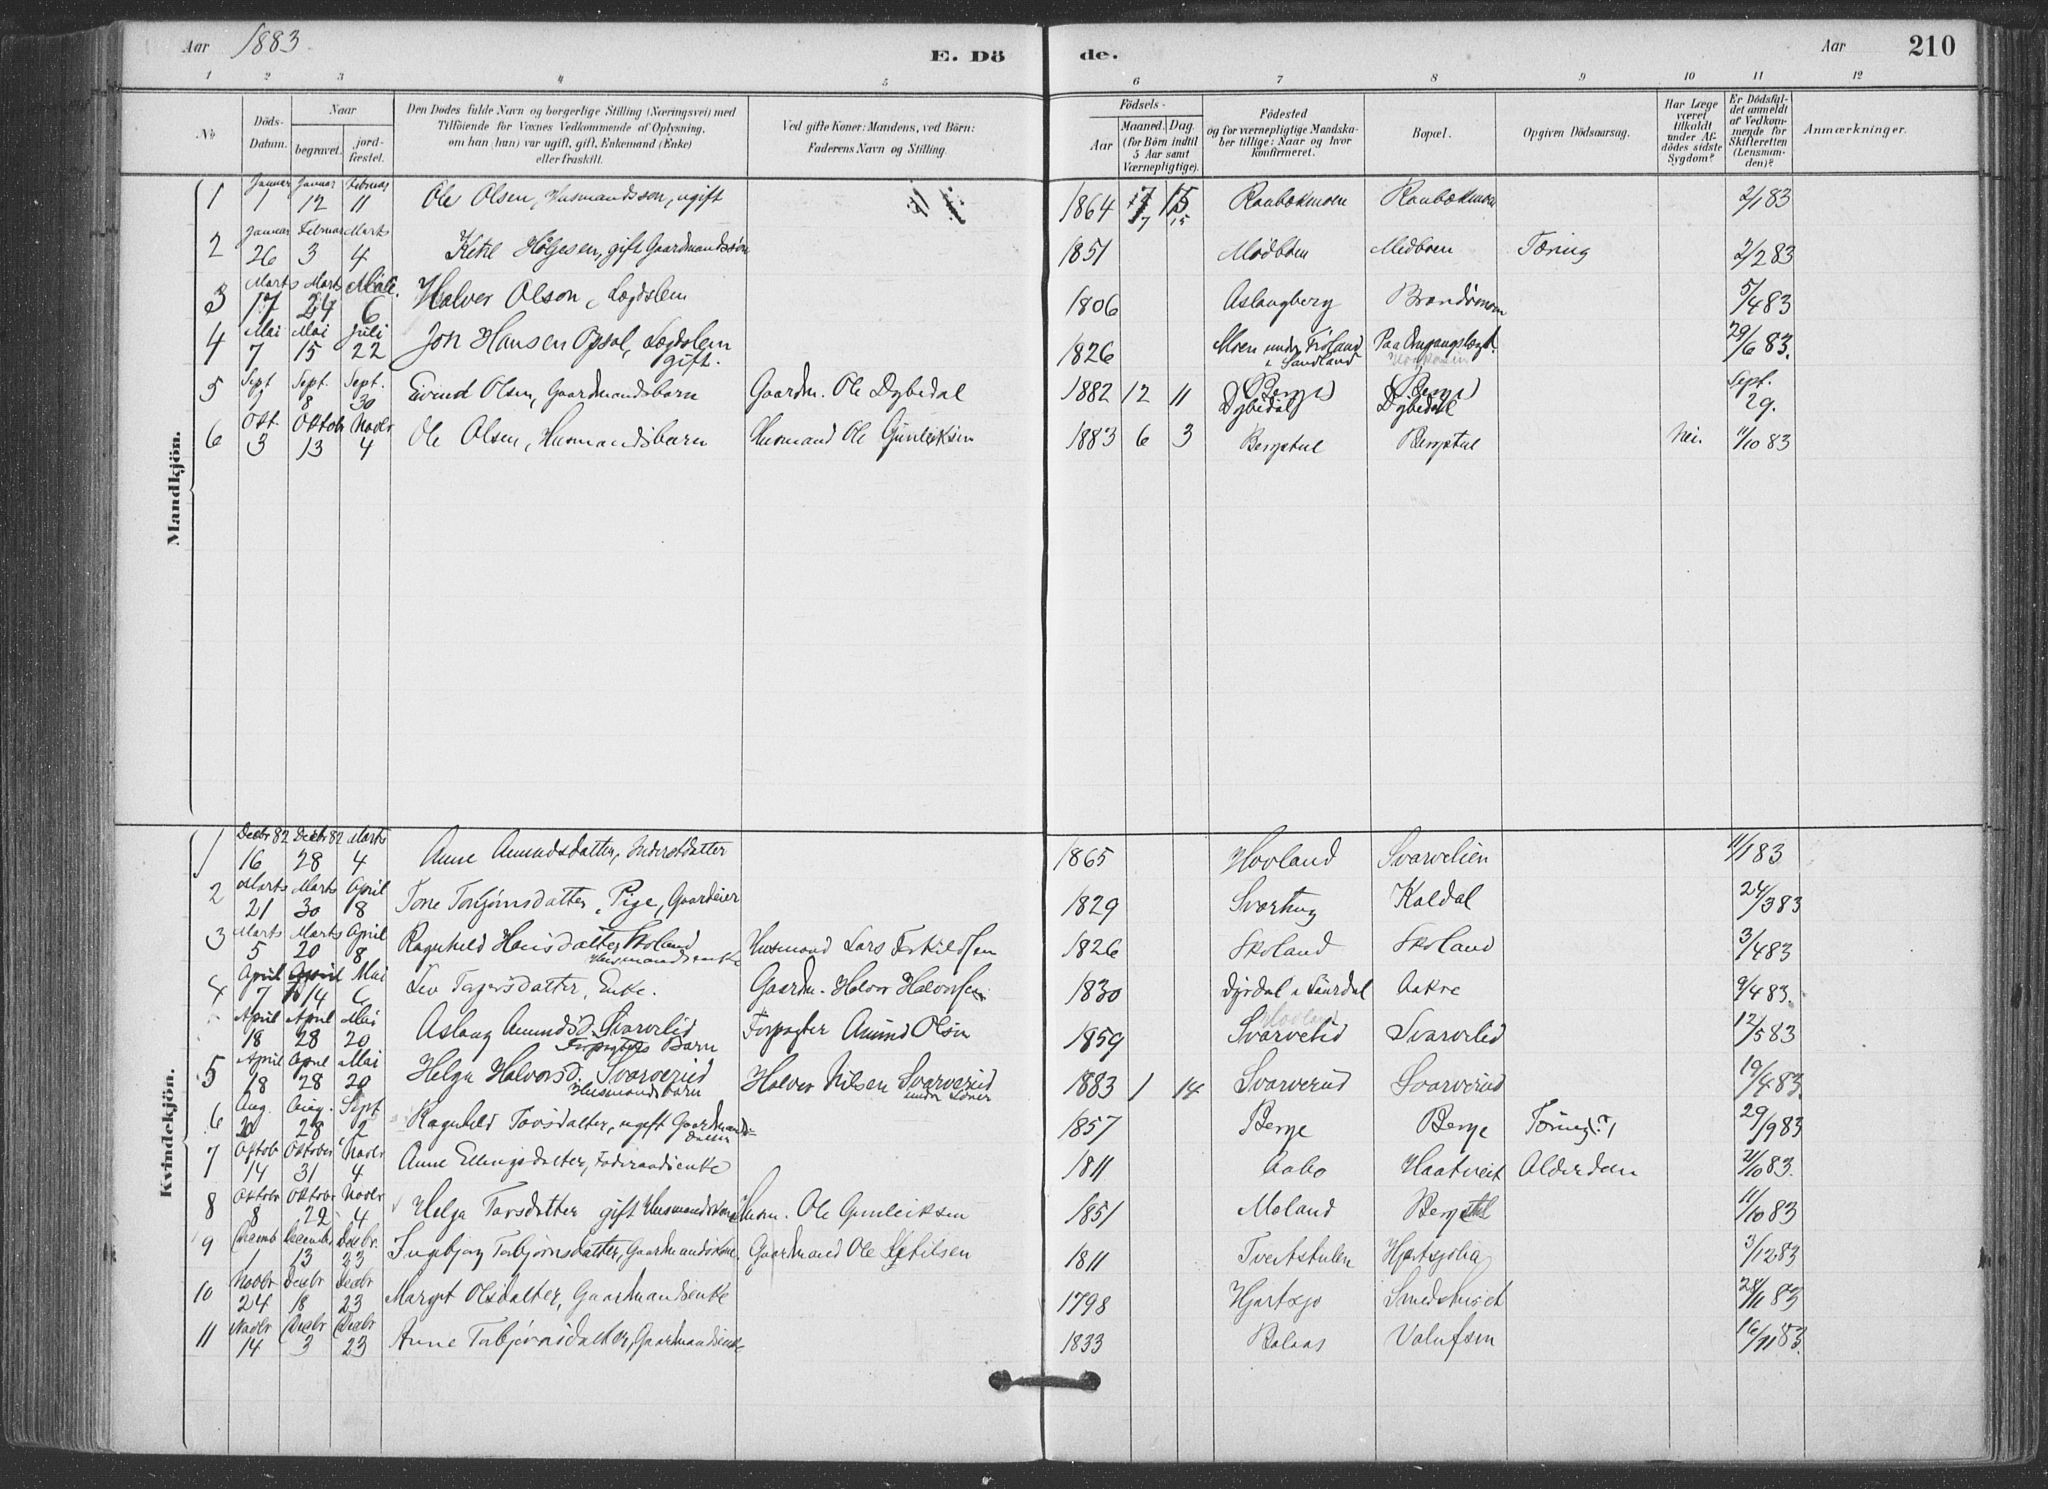 Aar 1883 E. Dö de. Aar 210
1 2 3 4 5 6 7 8 9 10 11 12
No Döds-Datum. Naar begravet. jordfæstet. Den Dödes fulde Navn og borgerlige Stilling (Næringsvei) med Tilföiende for Voxnes Vedkommende af Oplysning, om han (hun) var ugift, gift, Enkemand (Enke) eller fraskilt. Ved gifte Koner: Mandens, ved Börn: Faderens Navn og Stilling. Födsels- Aar Maaned. Dag. (for Börn indtil 5 Aar samt Værnepligtige). Födested og for værnepligtige Mandskaber tillige: Naar og hvor konfirmeret. Bopæl. Opgiven Dödsaarsag. Har Læge været tilkaldt under Afdödes sidste Sygdom? Er Dödsfaldet anmeldt af Vedkommende for Skifteretten (Lensmanden)? Anmærkninger.
Mandkjön.
1 Januar 1 Januar 12 Februar 11 Ole Olsen, Husmandssøn, ugift 1864 7 15 Raubækmoen Raubækmoen 2/1 83
2 Januar 26 Februar 3 Marts 4 Ketil Høljesen, gift Gaardmandssøn 1851 Midbøen Midboen Tæring 2/2 83
3 Marts 17 Marts 24 Mai 6 Halvor Olson, Lægdslem 1806 Aslaugberg 5/4 83
4 Mai 7 Mai 15 Juli 22 Jon Hansen Opsal, Lægdslem gift. 1826 Moen under Frøland i Sandland Paa Omgangslægd. 29/6 83.
5 Sept 1 Sept. 8 Sept. 30 Eivind Olsen, Gaardmandsbarn Gaardm. Ole Dybedal 1882 12 11 (Berge) Dybedal (Berge) Dybedal Sept. 29.
6 Okt. 3 Oktobr 13 Novbr 4 Ole Olsen, Husmandsbarn Husmand Ole Gunleiksen 1883 6 3 Bergstul Bergstul Nei. 11/10 83
Kvindekjön.
1 Decbr 82 16 Decbr 82 28 Marts 4 Anne Amundsdatter, Inderstdatter 1865 Hovland Svarvelien 11/1 83
2 Marts 21 Marts 30 April 8 Tone Torbjørnsdatter, Pige, Gaardeier 1829 Svartug Kaldal 24/3 83
3 Marts 5 Marts 20 April 8 Ragnhild Hansdatter Skoland Husmandsenke Husmand Lars Terkildsen 1826 Skoland Skoland 3/4 83
4 April 7 April 14 Mai 6 Liv Tarjersdatter, Enke. Gaardm. Halvor Halvorsen 1830 Dyrdal i Laurdal Aakre 9/4 83.
April 18 April 28 Mai 20 Aslaug Amundsd. Svarvelid Forpagters Barn Forpagter Amund Olsn 1859 Hovland Svarvelid Svarvelid 12/5 83
5 April 18 April 28 Mai 20 Helga Halvorsd. Svarverud Husmandsbarn Halvor Nilsen Svarverud 1883 1 14 Svarverud Svarverud 19/4 83.
6 Aug. 20 Aug. 28 Sept 2 Ragnhild Tovsdatter, ugift Gaardmandsdatter 1857 Berge Berge Tæring (?) 29/9 83
7 Oktobr 14 Oktober 31 Novbr 4 Anne Ellingsdatter, Føderaadsenke 1811 Aabo Haatveit Alderdom 21/10 83.
8 Oktobr 8 Oktobr 22 Novbr 4 Helga Tovsdatter gift Husmandskone Husm. Ole Gunleiksen 1851 Moland Bergstul 11/10 83
9 Decemb 1 December 13 Decbr. 23 Ingebjørg Torbjørnsdatter, Gaardmandskone. Gaardmand Ole Ketilsen 1811 Tveitstulen Hjartsjølia 3/12 83
10 Novbr 24 Decbr 18 Decbr 23 Margit Olsdatter, Gaardmandsenke 1798 Hjartsjø 28/11 83
11 Novbr 14 Decbr 3 Decbr 23 Anne Torbjørnsdatter, Gaardmandsenke 1833 Bakaas 16/11 83.